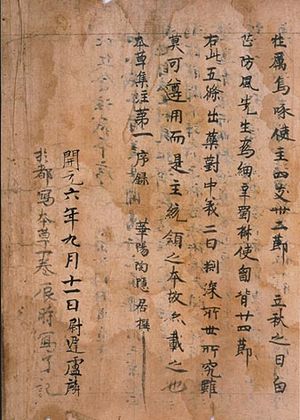 牡厲烏喙使主四支卅二節　立秋之日白
芷防風先生為細辛蜀椒使匈背廿四節
右此五條出藥對中義旨渕深非世所究雖
莫可遵用而是主統領之本故亦載之也
本草集注第一序錄　華陽陶隱居撰
開元六年九月十一日尉遲盧麟
於都寫本草一卷辰時寫了記